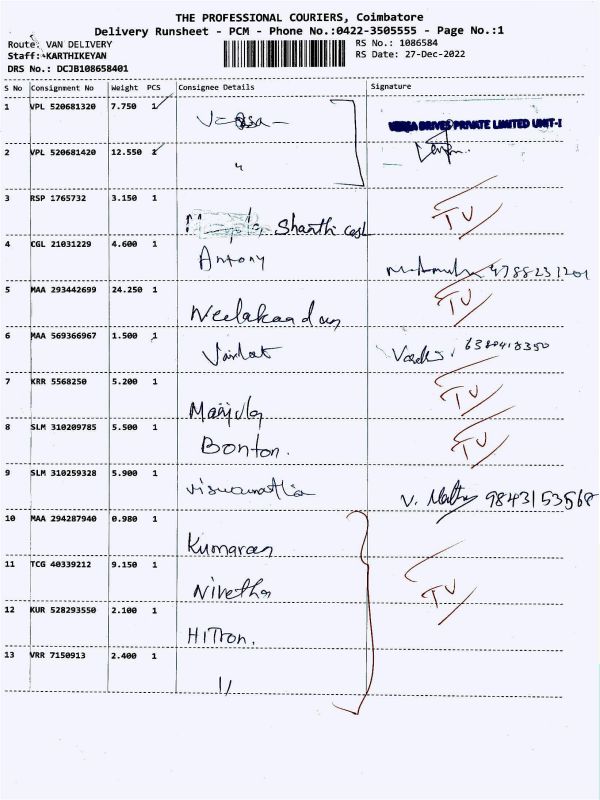 THE PROFESSIONAL COURIERS, Coimbatore
Delivery Runsheet - PCM - Phone No.:0422-3505555 - Page No.:1
Route: VAN DELIVERY
RS No.: 1086584
Staff:KARTHIKEYAN
RS Date: 27-Dec-2022
DRS No.: DCJB108658401
S No Consignment No Weight PCS Consignee Details Signature
1 VPL 520681320 7.750 1
VERSA DRIVES PRIVATE LIMITED UNIT-I
2 VPL 520681420 12.550 1 "
3 RSP 1765732 3.150 1 Shanthi TU
4 CGL 21031229 4.600 1 Antony
5 MAA 293442699 24.250 1 TU
6 MAA 569366967 1.500 1
7 KRR 5568250 5.200 1 TU
8 SLM 310209785 5.500 1 Bonton. TU
9 SLM 310259328 5.900 1 V. 9843153568
10 MAA 294287940 0.980 1 Kumaran
11 TCG 40339212 9.150 1 Nivetha TU
12 KUR 528293550 2.100 1 HITron.
13 VRR 7150913 2.400 1 "